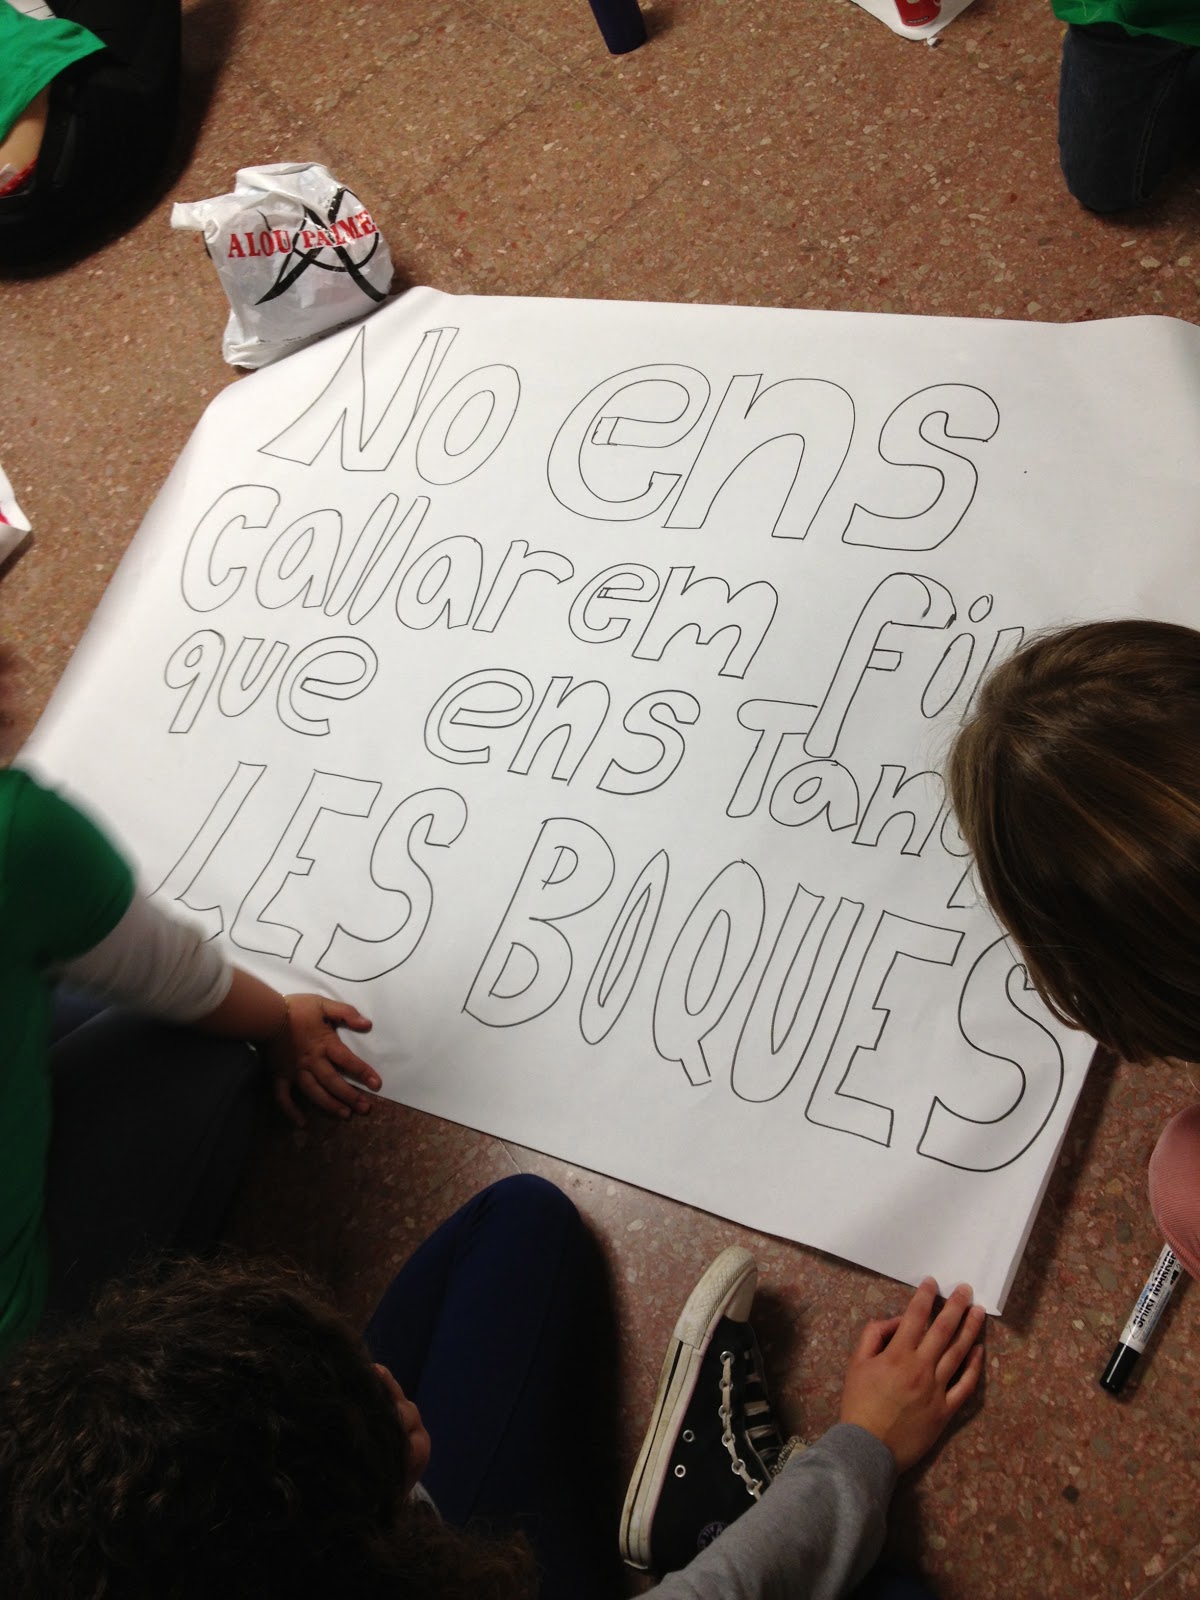 ALOU PALME
No ens
callarem fi
que ens Tan
LES BOQUES
SHIRT MARKER